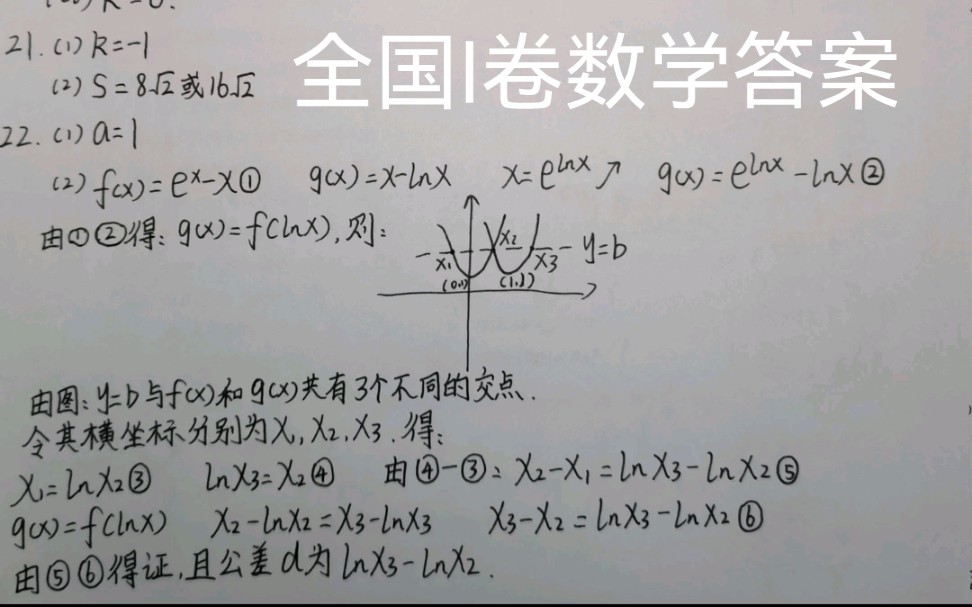 21.(1) k=-1
全国I卷数学答案
(2) S=8√2或16√2
22.(1) a=1
(2) f(x)=eˣ-x① g(x)=x-lnx x=e^lnx↗ g(x)=e^lnx-lnx②
由①②得:g(x)=f(lnx),则:
x₁ x₂ x₃ y=b
(0,1) (1,1)
由图:y=b与f(x)和g(x)共有3个不同的交点.
令其横坐标分别为x₁,x₂,x₃.得:
x₁=lnx₂③ lnx₃=x₂④ 由④-③:x₂-x₁=lnx₃-lnx₂⑤
g(x)=f(lnx) x₂-lnx₂=x₃-lnx₃ x₃-x₂=lnx₃-lnx₂⑥
由⑤⑥得证,且公差d为lnx₃-lnx₂.